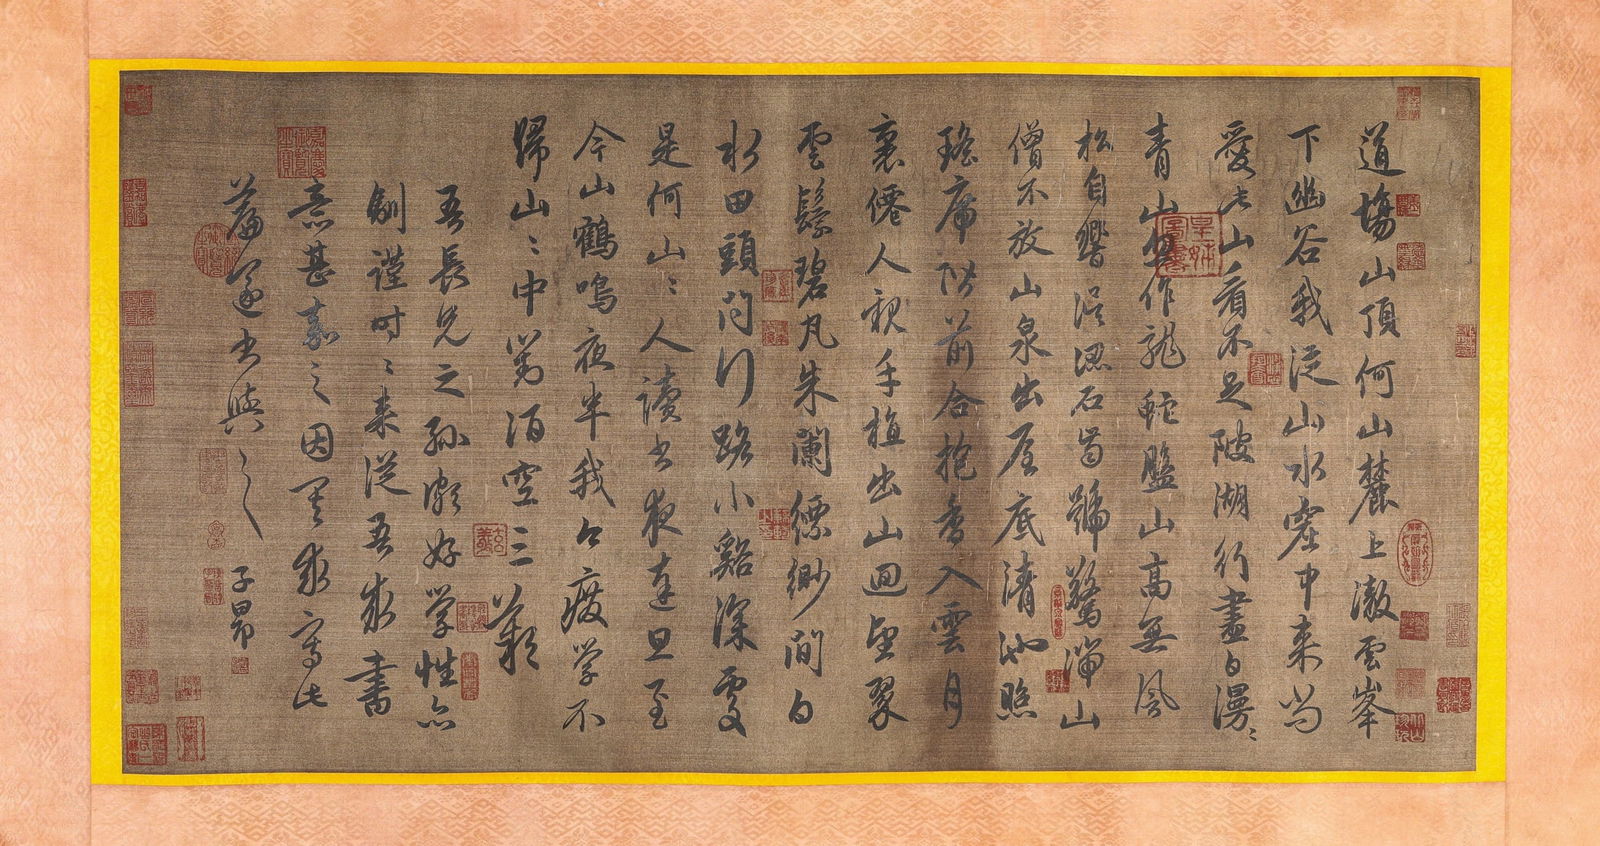 道場山頂何山麓上澈雲峯
下幽谷我從山水窟中来尚
愛此山看不足陂湖行盡白漫〻
青山忽作龍蛇盤山高無風
松自響誤認石齒號驚湍山
僧不放山泉出屋底清池照
瑤席階前合抱香入雲月
裏僊人親手植出山迴望翠
雲鬟碧瓦朱闌縹緲間白
水田頭問行路小谿深處
是何山〻人讀書夜達旦至
今山鶴鳴夜半我今廢學不
歸山〻中對酒空三歎
吾長兄之孫頗好學性亦
謹時〻来從吾求書
意甚嘉之因其求寫此
篇遂書與之
子昂